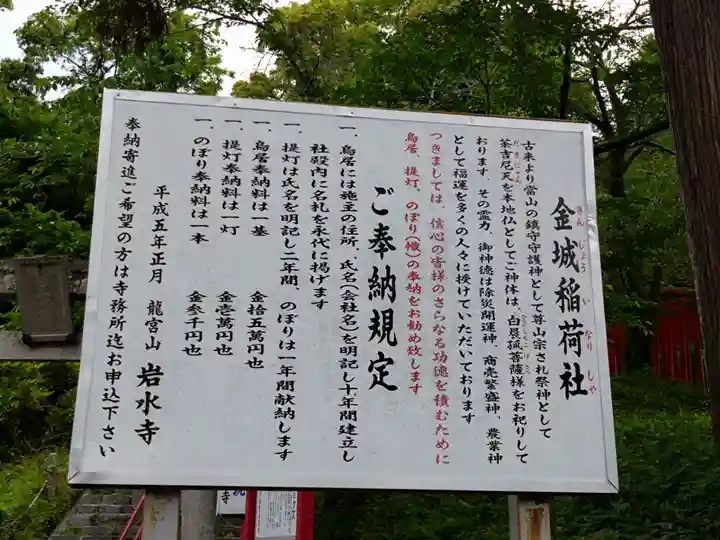 金城稲荷社
きんじょういなりしゃ
古来より當山の鎮守守護神として尊山宗され祭神として
荼吉尼天を本地仏としてご神体は、白晨狐菩薩様をお祀りして
おります、その霊力、御神徳は除災開運神、商売繁盛神、農業神
として福運を多くの人々に授けていただいております
つきましては、信心の皆様のさらなる功徳を積むために
鳥居、提灯、のぼり(幟)の奉納をお勧め致します
ご奉納規定
一、鳥居には施主の住所、氏名(会社名)を明記し十年間建立し
社殿内に名札を永代に掲げます
一、提灯は氏名を明記し二年間、のぼりは一年間献納します
一、鳥居奉納料は一基 金拾五萬円也
一、提灯奉納料は一灯 金壱萬円也
一、のぼり奉納料は一本 金参千円也
平成五年正月 龍宮山 岩水寺
奉納寄進ご希望の方は寺務所迄お申込下さい